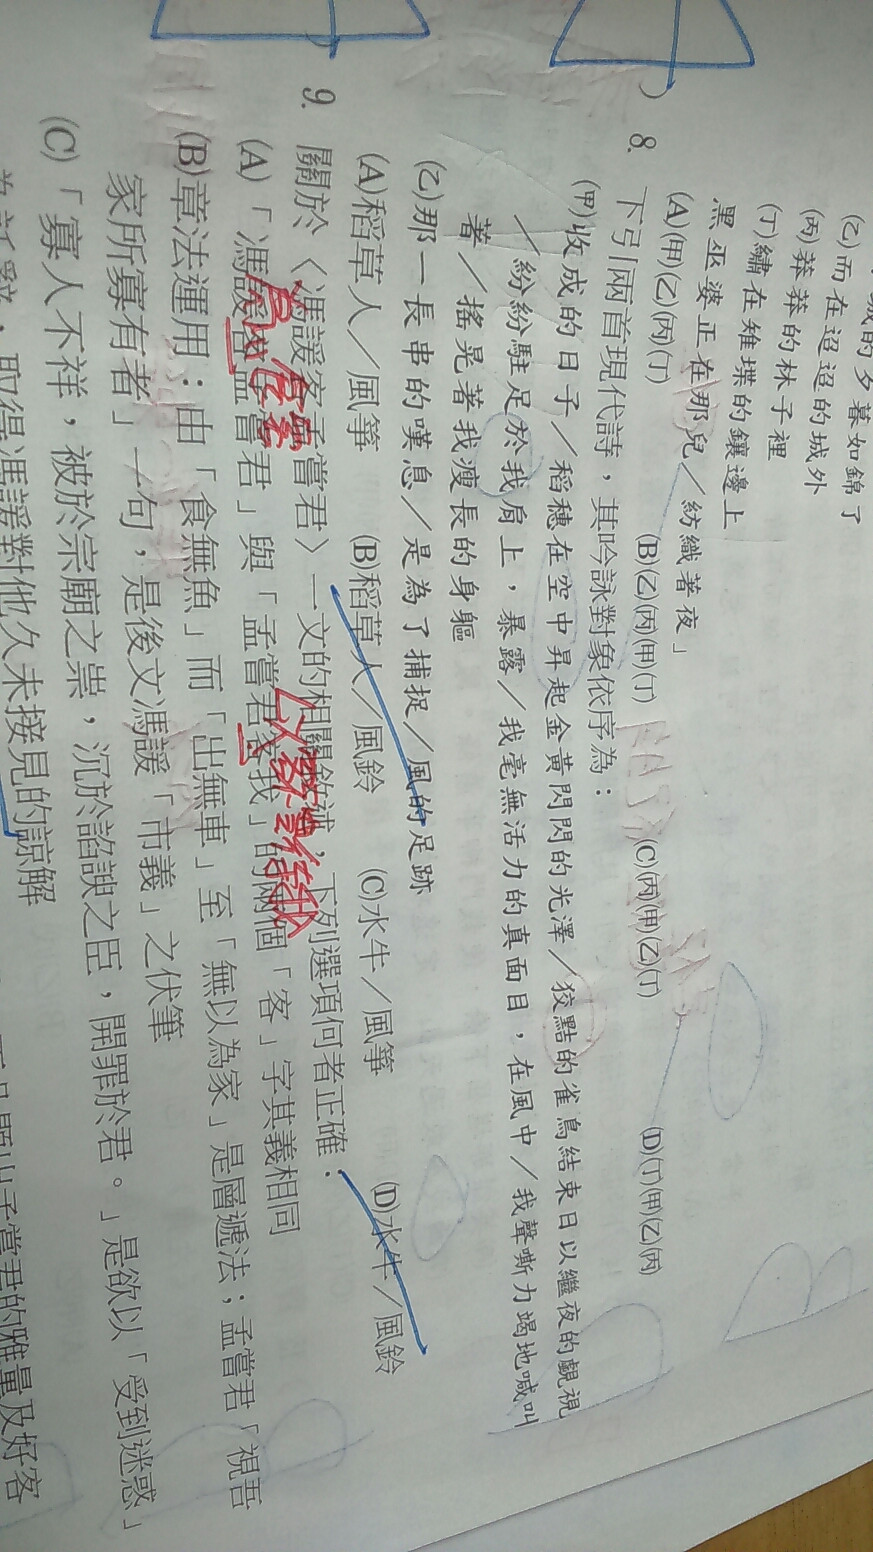 城的夕暮如錦了
(乙)而在迢迢的城外
(丙)莽莽的林子裡
(丁)繡在雉堞的鑲邊上
黑巫婆正在那兒／紡織著夜」
(A)(甲)(乙)(丙)(丁) (B)(乙)(丙)(甲)(丁) (C)(丙)(甲)(乙)(丁) (D)(丁)(甲)(乙)(丙)
8. 下引兩首現代詩，其吟詠對象依序為：
(甲)收成的日子／稻穗在空中昇起金黃閃閃的光澤／狡黠的雀鳥結束日以繼夜的覷視
／紛紛駐足於我肩上，暴露／我毫無活力的真面目，在風中／我聲嘶力竭地喊叫
著／搖晃著我瘦長的身軀
(乙)那一長串的嘆息／是為了捕捉／風的足跡
(A)稻草人／風箏 (B)稻草人／風鈴 (C)水牛／風箏 (D)水牛／風鈴
9. 關於〈馮諼客孟嘗君〉一文的相關敘述，下列選項何者正確：
(A)「馮諼客孟嘗君」與「孟嘗君客我」的兩個「客」字其義相同
(B)章法運用：由「食無魚」而「出無車」至「無以為家」是層遞法；孟嘗君「視吾
家所寡有者」一句，是後文馮諼「市義」之伏筆
(C)「寡人不祥，被於宗廟之祟，沉於諂諛之臣，開罪於君。」是欲以「受到迷惑」
為託辭，取得馮諼對他久未接見的諒解
孟嘗君的雅量及好客